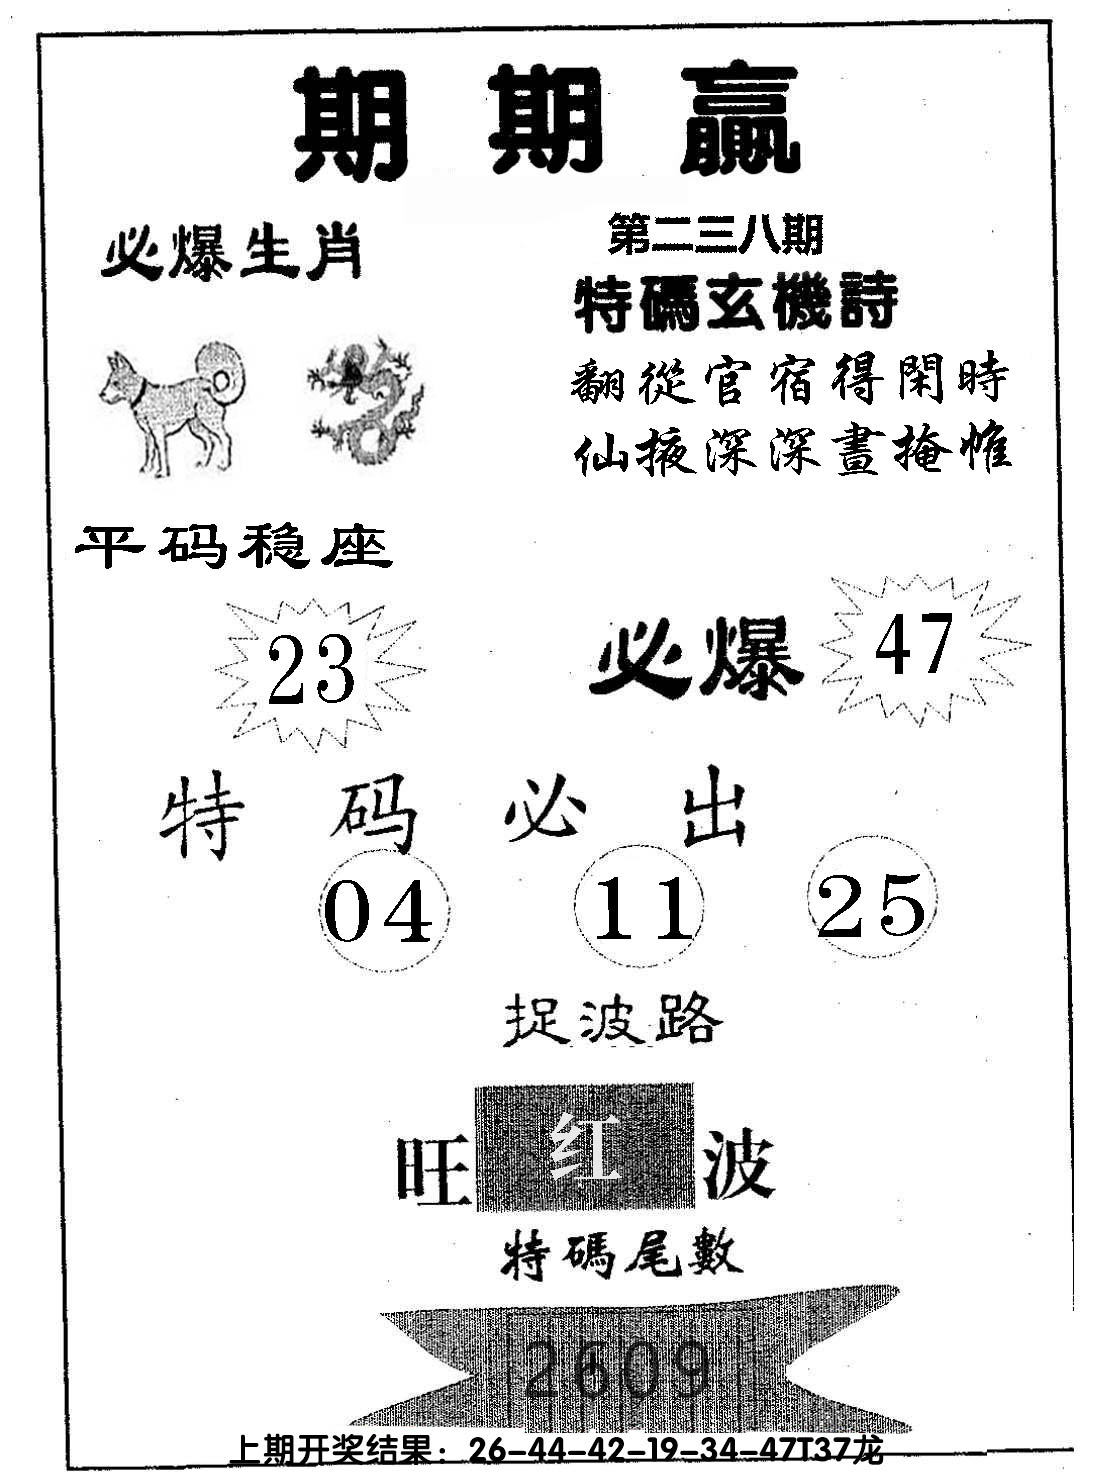 期期贏
必爆生肖
第二三八期
特碼玄機詩
翻從官宿得閑時
仙掖深深晝掩帷
平码稳座
23
必爆
47
特码必出
04 11 25
捉波路
旺红波
特碼尾數
2609
上期开奖结果：26-44-42-19-34-47T37龙